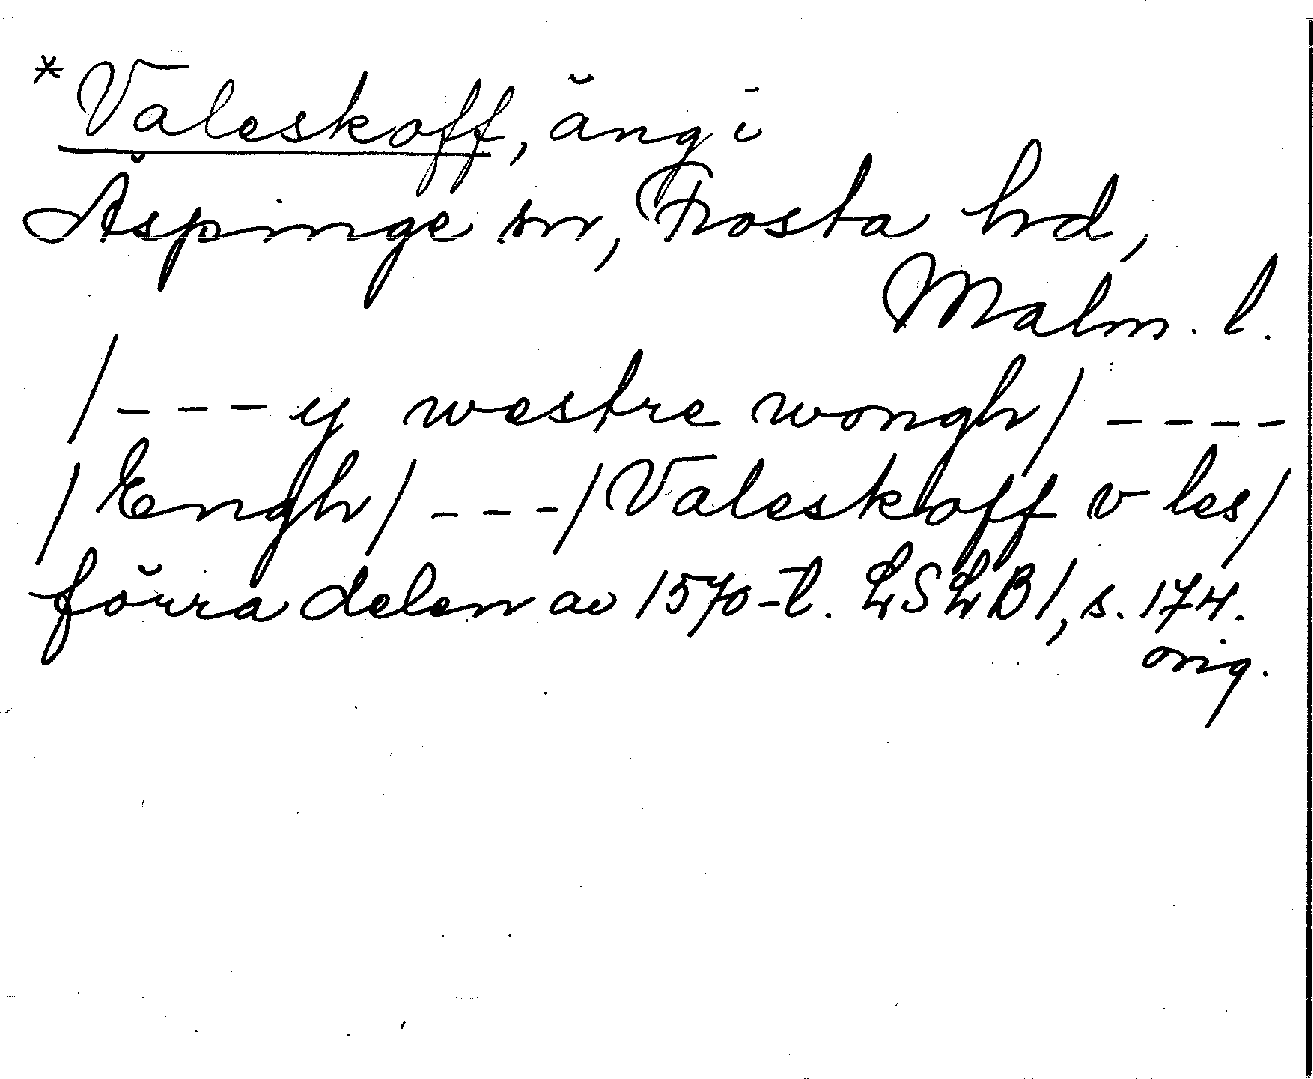 *Valeskoff, äng i
Äspinge sn, Frosta hd,
Malm. l.
/---y westre wongh/ ----
/Engh/ ---/Valeskoff v les/
förra delen av 1570-t. LSLB1, s. 174.
orig.